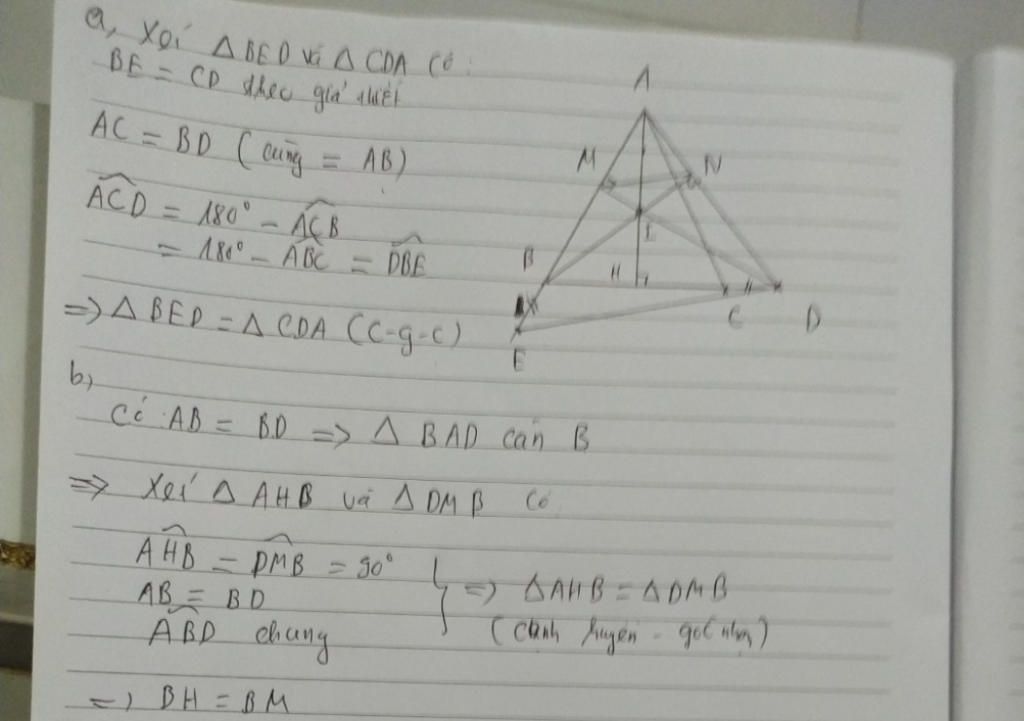 a, Xét △ BED và △ CDA có:
BE = CD theo giả thiết
AC = BD ( cùng = AB)
ACD = 180° - ACB
= 180° - ABC = DBE
=> △ BED = △ CDA (c-g-c)
A
M
N
I
B
H
C
D
E
b,
Có AB = BD => △ BAD cân B
=> Xét △ AHB và △ DMB có
AHB = DMB = 90°
AB = BD
ABD chung
} => △AHB = △DMB
(cạnh huyền - góc nhọn)
=> BH = BM